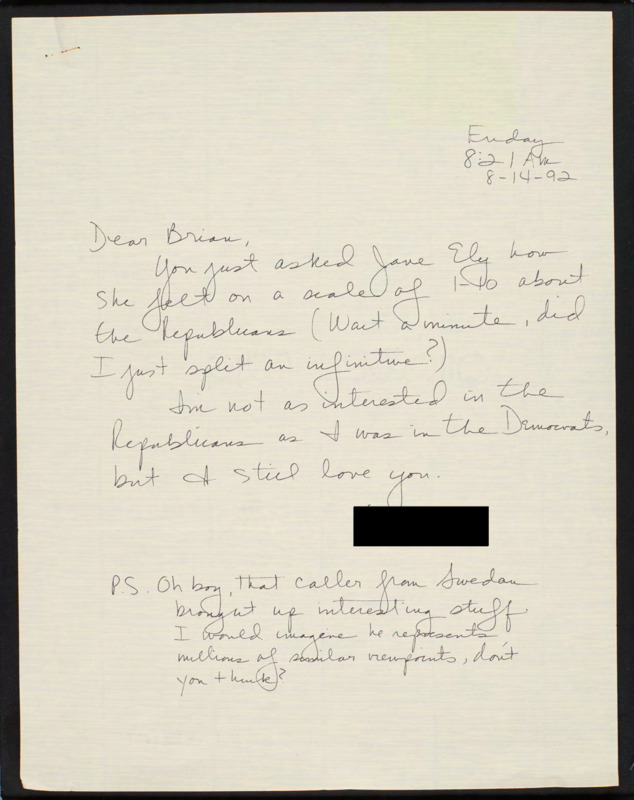 Friday
8:21 AM
8-14-92
Dear Brian,
You just asked Jane Ely how
she felt on a scale of 1-10 about
the Republicans (Wait a minute, did
I just split an infinitive?)
I'm not as interested in the
Republicans as I was in the Democrats,
but I still love you.
P.S. Oh boy, that caller from Sweden
brought up interesting stuff.
I would imagine he represents
millions of similar viewpoints, don't
you think?